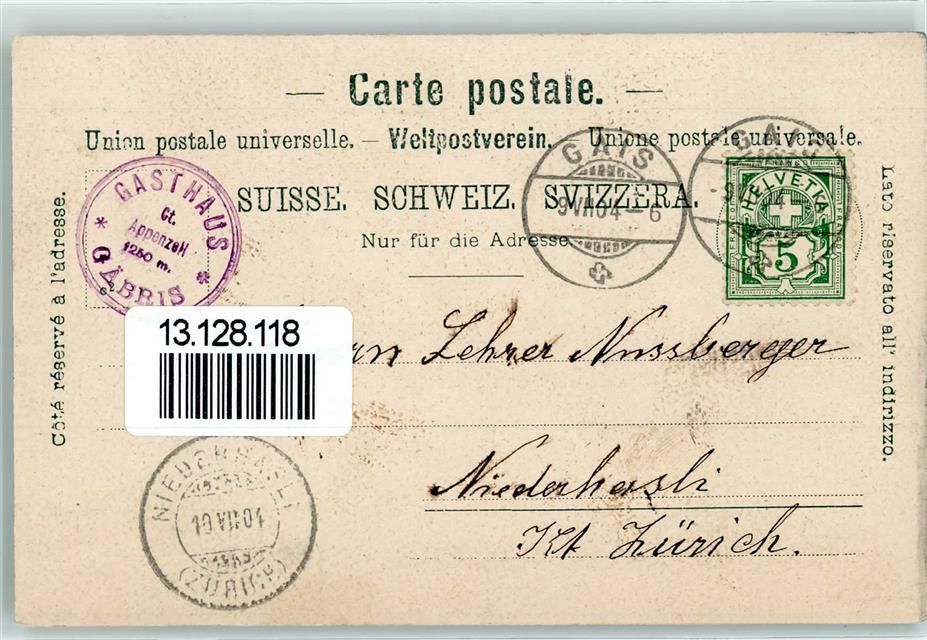 — Carte postale. —
Union postale universelle. — Weltpostverein. Unione postale universale.
SUISSE. SCHWEIZ. SVIZZERA.
Nur für die Adresse.
Côté réservé à l'adresse.
Lato riservato all' indirizzo.
GASTHAUS
Ct.
Appenzell
1250 m.
* GÄBRIS *
GAIS
9 VII 04 - 6
GAIS
-9 VII 04
FRANCO
HELVETIA
5
13.128.118
rn Lehrer Nussberger
Niederhasli
Kt Zürich.
NIEDERHASLI
10 VII 04
(ZÜRICH)